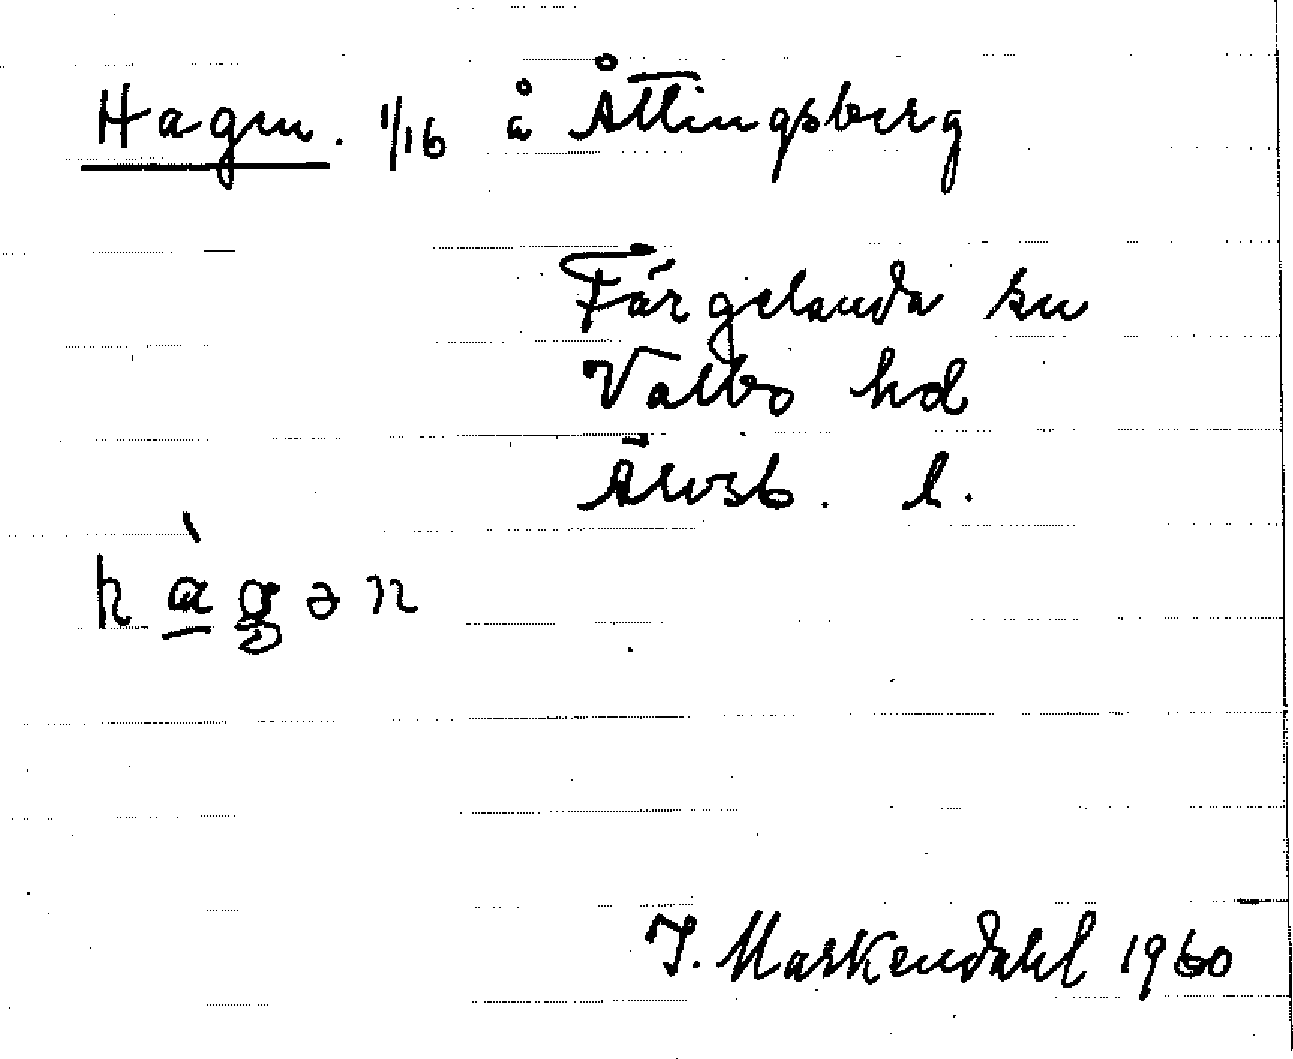 Hagen. 1/16 å Åttingsberg
Färgelanda sn
Valbo hd
Älvsb. l.
hàgən
I. Markendahl 1960